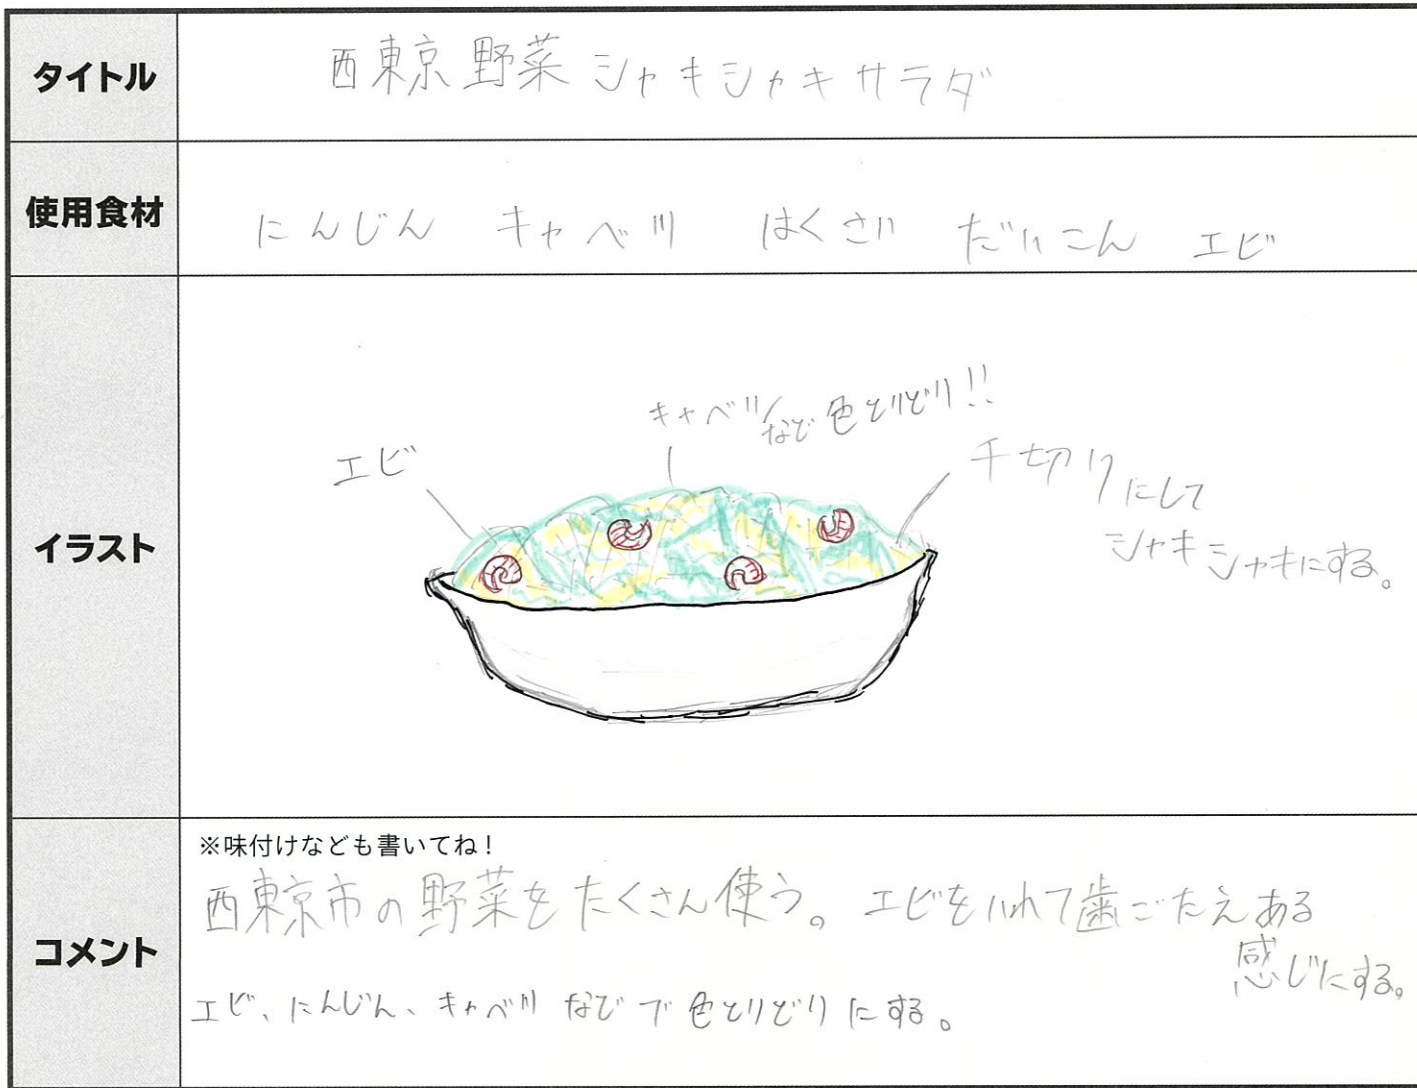 タイトル
西東京 野菜 シャキシャキサラダ
使用食材
にんじん キャベツ はくさい だいこん エビ
イラスト
エビ
キャベツなど色とりどり!!
千切りにして
シャキシャキにする。
コメント
※味付けなども書いてね!
西東京市の野菜をたくさん使う。エビをいれて歯ごたえある
感じにする。
エビ、にんじん、キャベツなどで色とりどりにする。